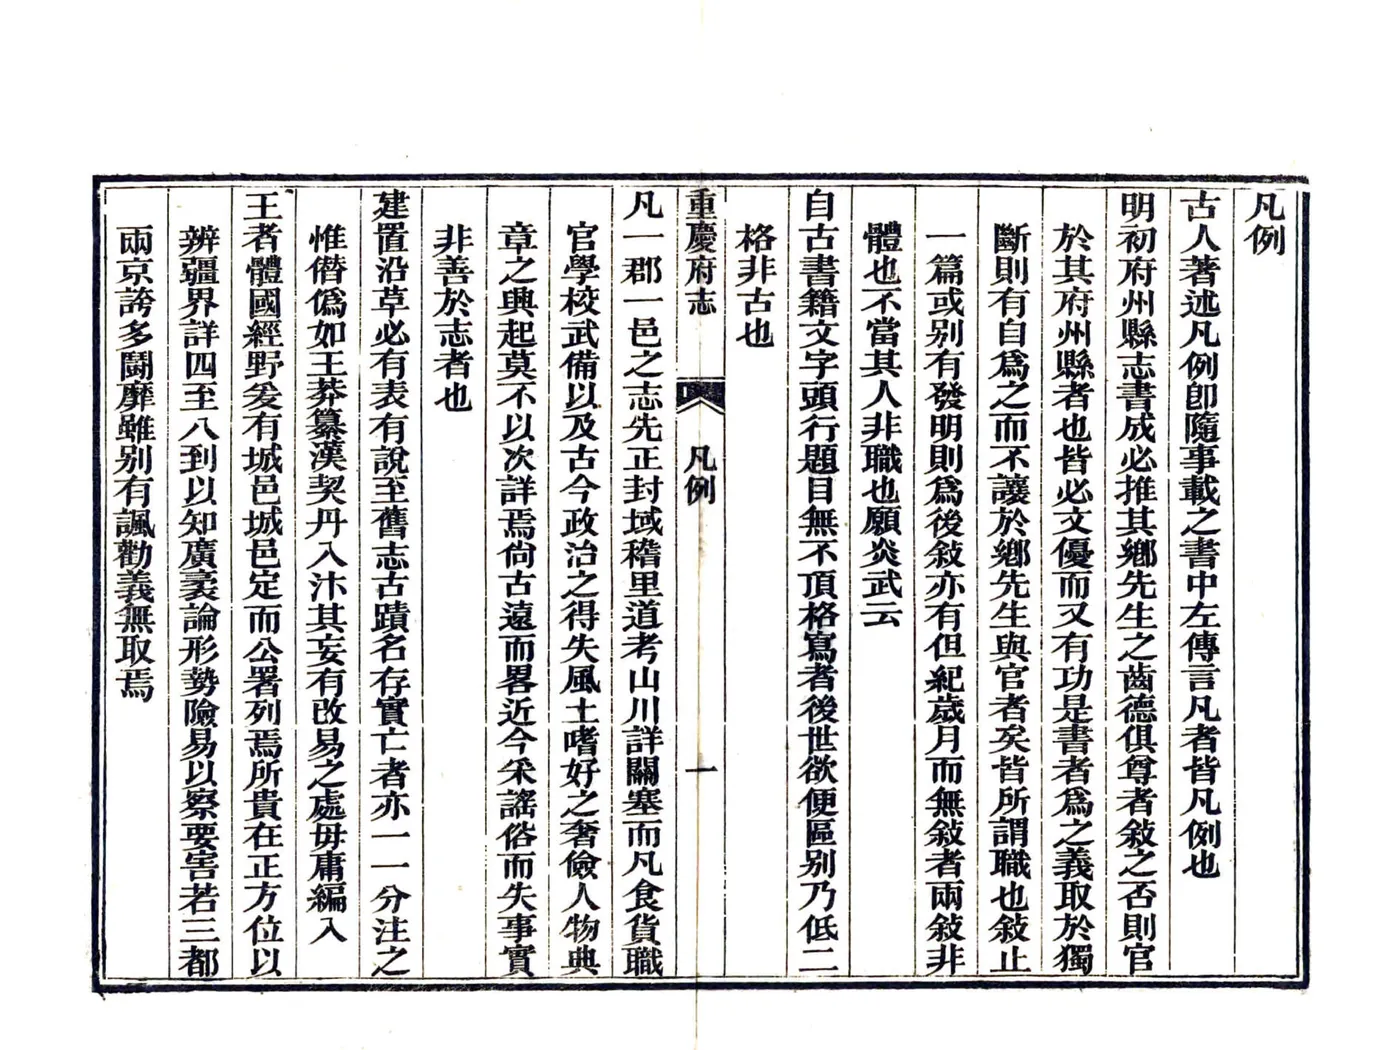 凡例
古人著述凡例卽隨事載之書中左傳言凡者皆凡例也
明初府州縣志書成必推其鄕先生之齒德俱尊者敍之否則官
於其府州縣者也皆必文優而又有功是書者爲之義取於獨
斷則有自爲之而不讓於鄕先生與官者矣皆所謂職也敍止
一篇或别有發明則爲後敍亦有但紀歲月而無敍者兩敍非
體也不當其人非職也願炎武云
自古書籍文字頭行題目無不頂格寫者後世欲便區别乃低二
格非古也
重慶府志 凡例 一
凡一郡一邑之志先正封域稽里道考山川詳關塞而凡食貨職
官學校武備以及古今政治之得失風土嗜好之奢儉人物典
章之興起莫不以次詳焉尙古遠而畧近今采謠俗而失事實
非善於志者也
建置沿革必有表有說至舊志古蹟名存實亡者亦一一分注之
惟僭僞如王莽纂漢契丹入汴其妄有改易之處毋庸編入
王者體國經野爰有城邑城邑定而公署列焉所貴在正方位以
辨疆界詳四至八到以知廣袤論形勢險易以察要害若三都
兩京誇多鬭靡雖别有諷勸義無取焉